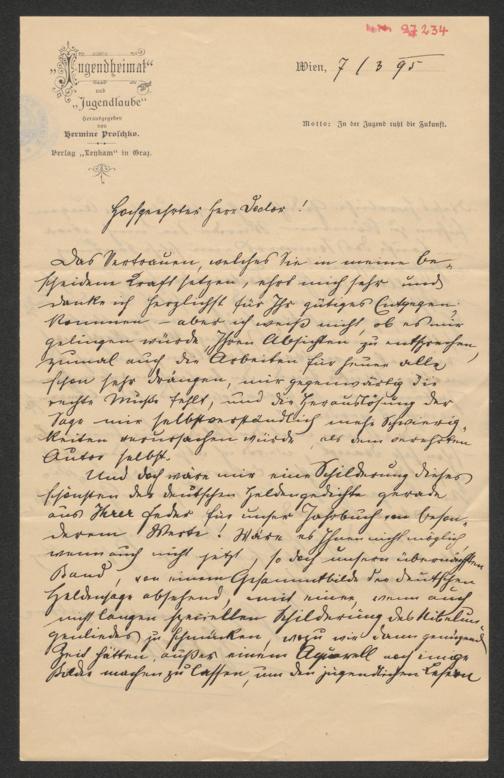 27234
„Jugendheimat“
und
„Jugendlaube“
Herausgegeben
von
Hermine Proschko.
Verlag „Leykam“ in Graz.
Wien, 7/3 95
Motto: In der Jugend ruht die Zukunft.
Hochgeehrter Herr Doctor!
Das Vertrauen, welches Sie in meine be-
scheidene Kraft setzen, ehrt mich sehr und
danke ich herzlichst für Ihr gütiges Entgegen-
kommen – aber ich weiß nicht, ob es mir
gelingen würde Ihren Absichten zu entsprechen,
zumal auch die Arbeiten für heuer alle
schon sehr drängen, mir gegenwärtig die
rechte Muße fehlt, und die Herauslösung der
Sage mir selbstverständlich mehr Schwierig-
keiten verursachen würde, als dem verehrten
Autor selbst.
Und doch wäre mir eine Schilderung dieses
schönsten der deutschen Heldengedichte gerade
aus Ihrer Feder für unser Jahrbuch von beson-
derem Werte! Wäre es Ihnen nicht möglich
wenn auch nicht jetzt, so doch unsern übernächsten
Band, von einem Gesammtbilde der deutschen
Heldensage absehend, mit einer wenn auch
nicht langen speciellen Schilderung des Nibelun-
genliedes zu schmücken, wozu wir dann genügend
Zeit hätten, außer einem Aquarell noch einige
Bilder machen zu lassen, um den jugendlichen Lesern